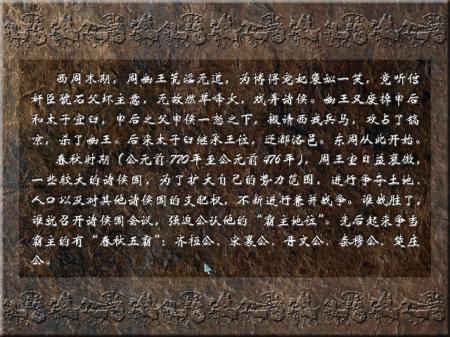 西周末期，周幽王荒淫无道，为博得宠妃褒姒一笑，竟听信
奸臣虢石父坏主意，无故燃举烽火，戏弄诸侯。幽王又废掉申后
和太子宜臼，申后之父申侯一怒之下，拟请西戎兵马，攻占了镐
京，杀了幽王。后来太子臼继承王位，迁都洛邑。东周从此开始。
春秋时期（公元前770年至公元前476年），周王室日益衰微，
一些较大的诸侯国，为了扩大自己的势力范围，进行争夺土地、
人口以及对其他诸侯国的支配权，不断进行兼并战争。谁战胜了，
谁就召开诸侯国会议，强迫公认他的“霸主地位”。先后起来争当
霸主的有“春秋五霸”：齐桓公、宋襄公、晋文公、秦穆公、楚庄
公。